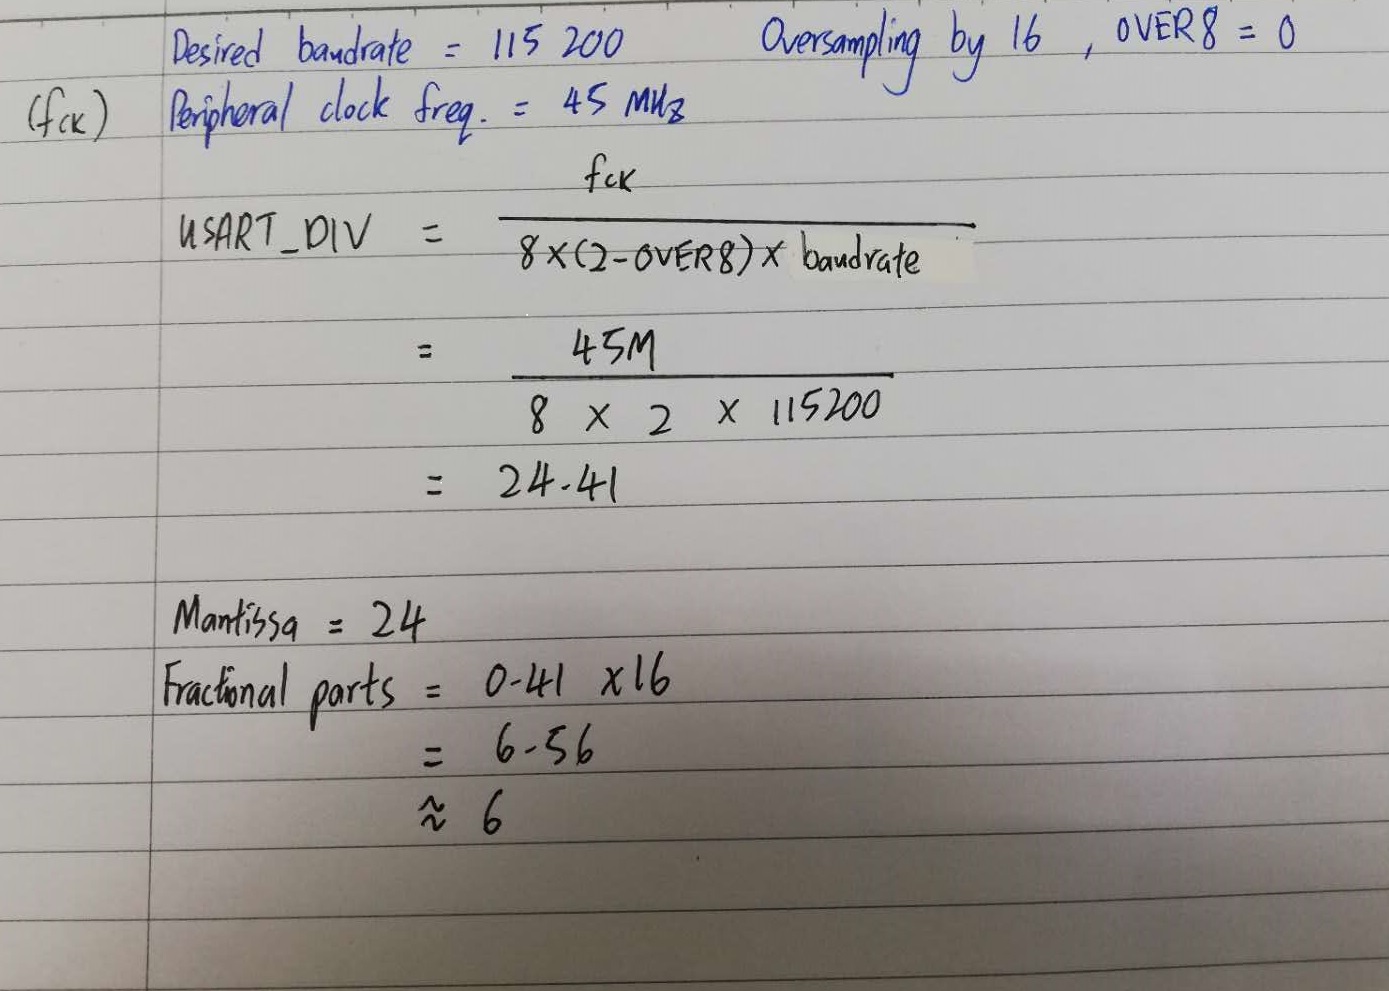 Desired baudrate = 115 200 Oversampling by 16 , OVER8 = 0
(fck) Peripheral clock freq. = 45 MHz
fck
USART_DIV =
8×(2-OVER8)× baudrate
= 45M
8 × 2 × 115200
= 24.41
Mantissa = 24
Fractional parts = 0.41 ×16
= 6.56
≈ 6